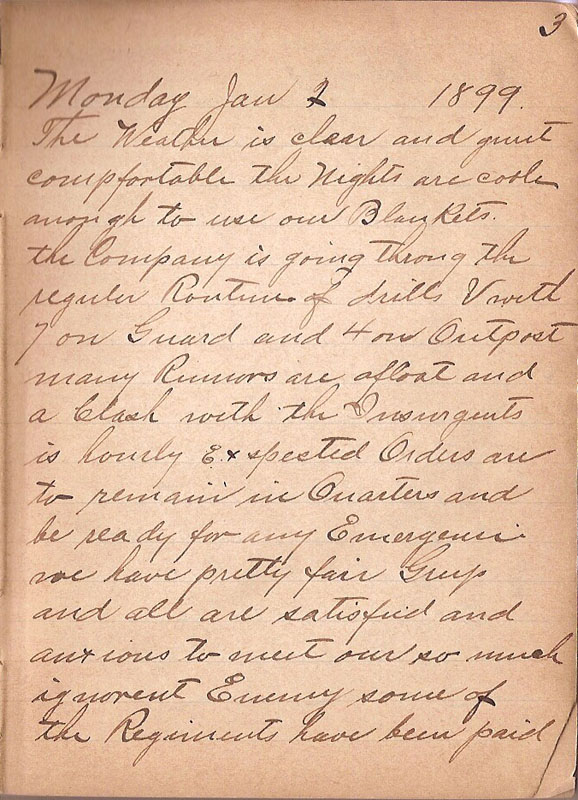 3
Monday Jan 2 1899.
The Weather is claar and quiet
compfortable the Nights are coole
anough to use our Blankets.
the Company is going throug the
reguler Routine of drills V with
7 on Guard and 4 on Outpost
many Rumors are afloat and
a Clash with the Insurgents
is hourly Exspested Orders are
to remain in Quarters and
be ready for any Emergenci
we have pretty fair Grup
and all are satisfied and
anxious to meet our so much
ignorent Enemy some of
the Regiments have been paid